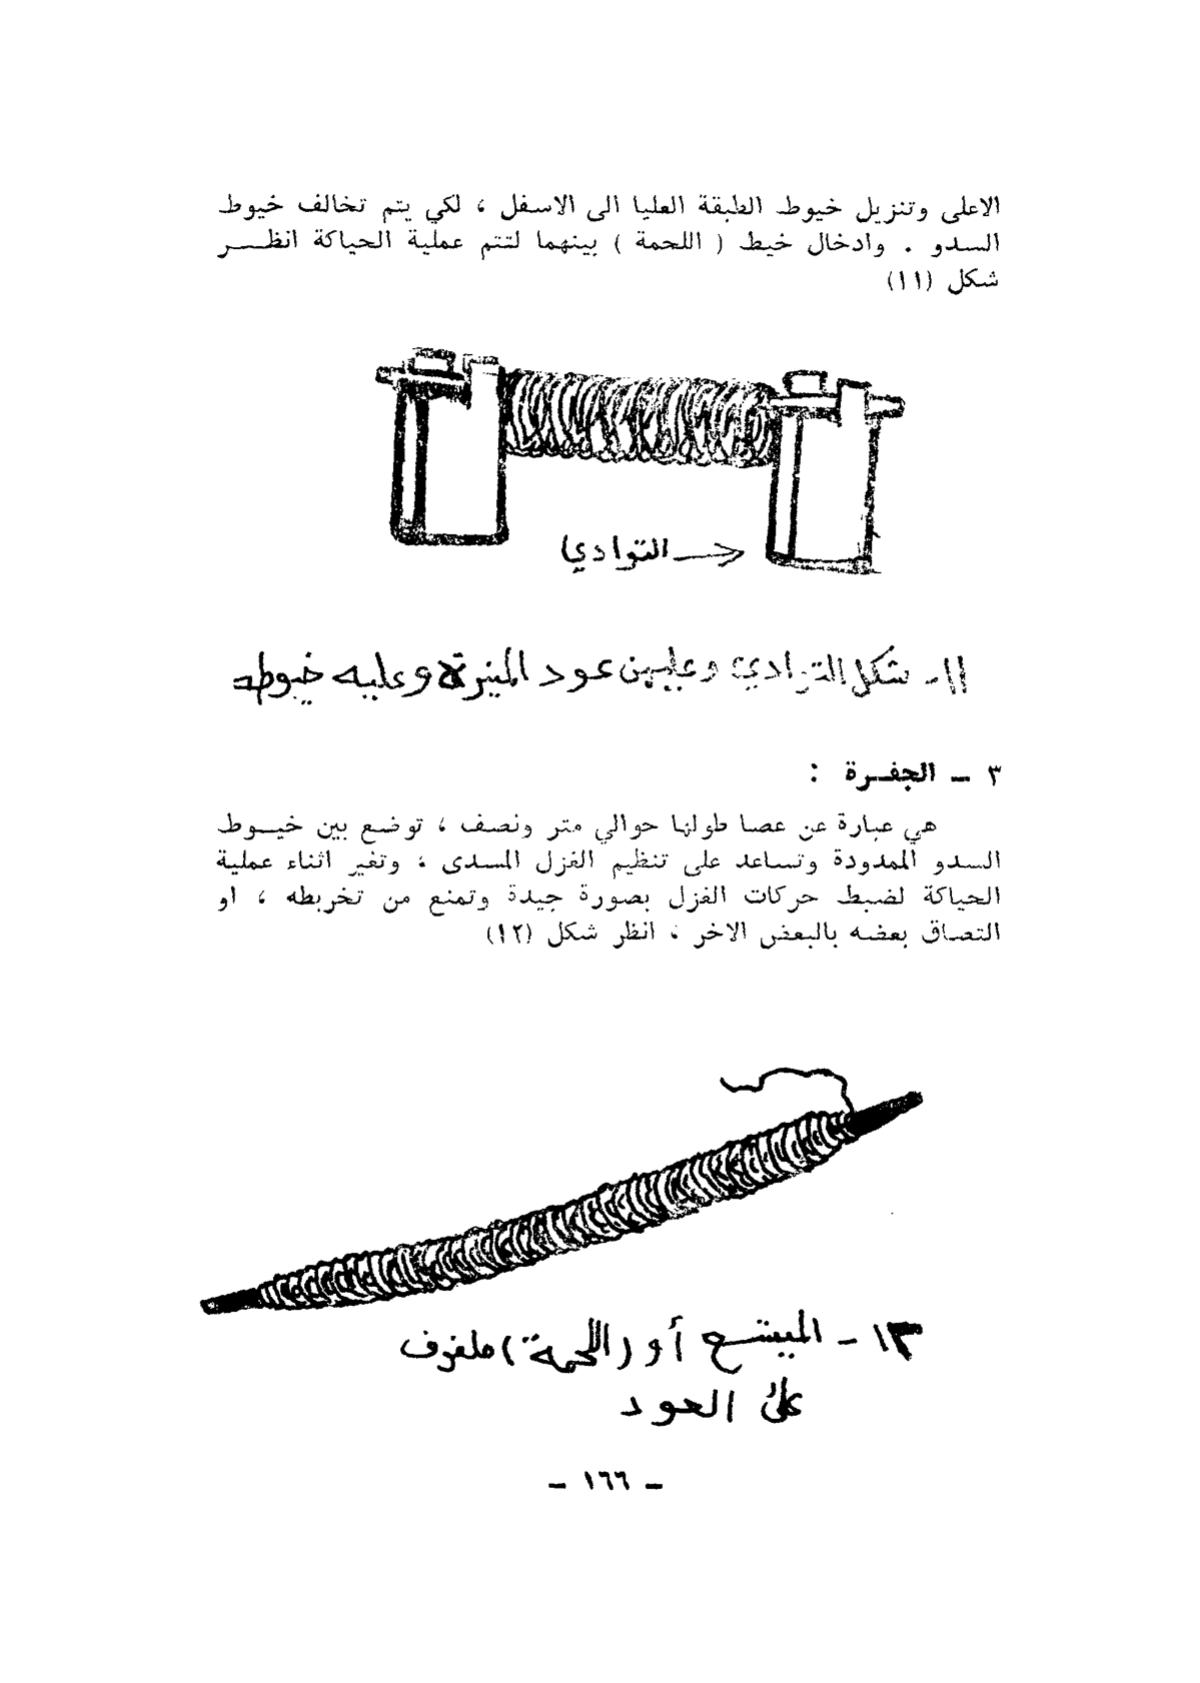 الاعلى وتنزيل خيوط الطبقة العليا الى الاسفل ، لكي يتم تخالف خيوط
السدو . وادخال خيط ( اللحمة ) بينهما لتتم عملية الحياكة انظـــر
شكل (١١)
التوادي
١١- شكل التوادي وعليهن عود المنيرة وعليه خيوطه
٣ ــ الجفــرة :
هي عبارة عن عصا طولها حوالي متر ونصف ، توضع بين خيــوط
السدو الممدودة وتساعد على تنظيم الغزل المسدى ، وتغير اثناء عملية
الحياكة لضبط حركات الغزل بصورة جيدة وتمنع من تخربطه ، او
التصاق بعضه بالبعض الاخر ، انظر شكل (١٢)
١٣ - الميشع أو (اللحمة) ملفوف
على العود
ــ ١٦٦ ــ